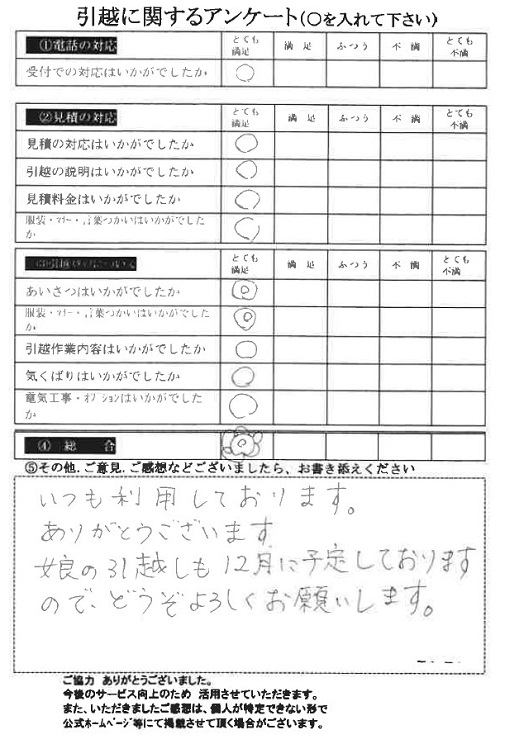 引越に関するアンケート(○を入れて下さい)
①電話の対応 とても満足 満足 ふつう 不満 とても不満
受付での対応はいかがでしたか ○
②見積の対応 とても満足 満足 ふつう 不満 とても不満
見積の対応はいかがでしたか ○
引越の説明はいかがでしたか ○
見積料金はいかがでしたか ○
服装・マナー・言葉づかいはいかがでしたか ○
とても満足 満足 ふつう 不満 とても不満
あいさつはいかがでしたか ◎
服装・マナー・言葉づかいはいかがでしたか ◎
引越作業内容はいかがでしたか ○
気くばりはいかがでしたか ○
電気工事・オプションはいかがでしたか ○
④ 総 合
⑤その他.ご意見.ご感想などございましたら、お書き添えください
いつも利用しております。
ありがとうございます
娘の引越しも12月に予定しております
ので、どうぞよろしくお願いします。
ご協力 ありがとうございました。
今後のサービス向上のため 活用させていただきます。
また、いただきましたご感想は、個人が特定できない形で
公式ホームページ等にて掲載させて頂く場合がございます。